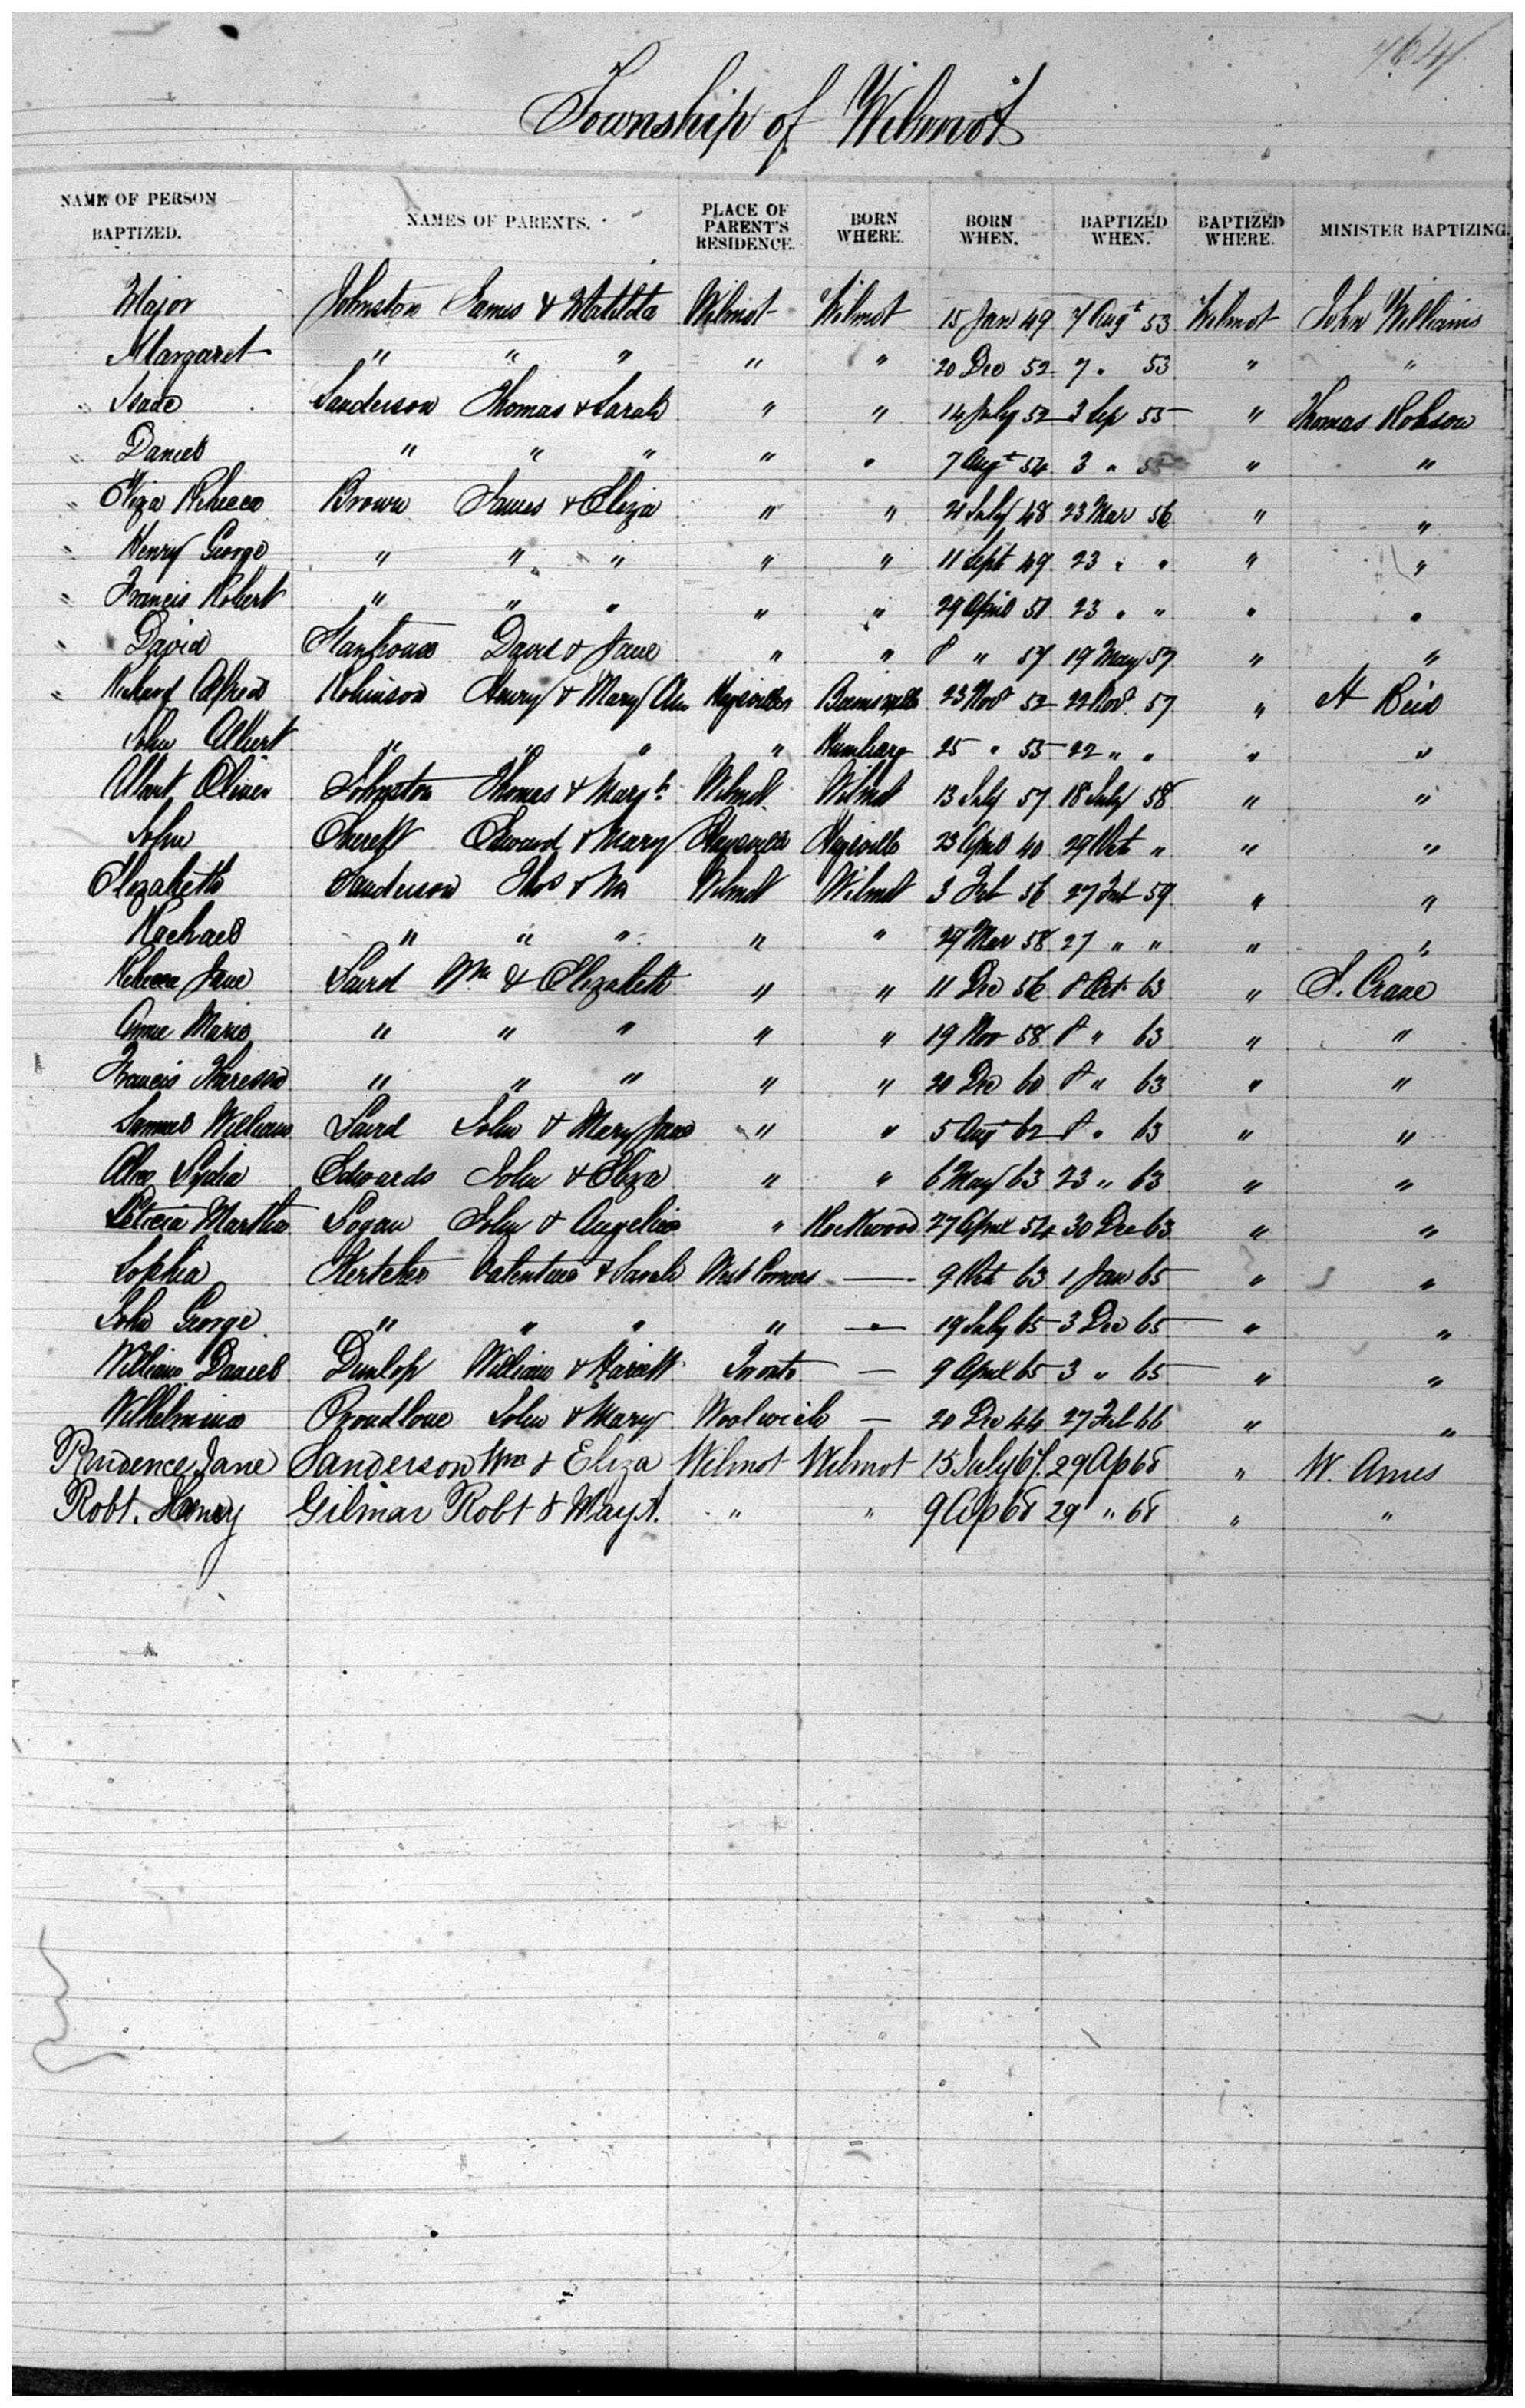 764
Township of Wilmot
NAME OF PERSON BAPTIZED. NAMES OF PARENTS. PLACE OF PARENT'S RESIDENCE. BORN WHERE. BORN WHEN. BAPTIZED WHEN. BAPTIZED WHERE. MINISTER BAPTIZING.
Major Johnston James & Matilda Wilmot Wilmot 15 Jan 49 7 Augt 53 Wilmot John Williams
Margaret " " " " " 20 Dec 52 7 " 53 " "
Isaac Sanderson Thomas & Sarah " " 14 July 52 3 Sep 55 " Thomas Robson
Daniel " " " " " 7 Augt 54 3 " 55 " "
Eliza Rebecca Brown James & Eliza " " 21 July 48 23 Mar 56 " "
Henry George " " " " " 11 Sept 49 23 " " " "
Francis Robert " " " " " 29 April 51 23 " " " "
David David & Jane " " 8 " 57 19 May 57 " "
Richard Alfred Robinson Henry & Mary Ann Haysville Beamsville 23 Nov 52 22 Nov 57 " A Reid
John Albert " " " " Hamburg 25 " 55 22 " " " "
Albert Oliver Johnston Thomas & Margt Wilmot Wilmot 13 July 57 18 July 58 " "
John Edward & Mary Haysville Haysville 23 April 40 29 Oct " " "
Elizabeth Sanderson Thos & Wilmot Wilmot 3 Feb 56 27 Feb 59 " "
Rachael " " " " " 29 Mar 58 27 " " " "
Rebecca Jane Laird Wm & Elizabeth " " 11 Dec 56 8 Oct 63 " S. Crane
Annie Maria " " " " " 19 Nov 58 8 " 63 " "
Francis " " " " " 20 Dec 60 8 " 63 " "
Samuel William Laird John & Mary Jane " " 5 Aug 62 8 " 63 " "
Lydia Edwards John & Eliza " " 6 May 63 23 " 63 " "
Leticia Martha Logan John & Angelina " Rockwood 27 April 54 30 Dec 63 " "
Sophia Valentine & Sarah West Corners — 9 Oct 63 1 Jan 65 " "
John George " " " " — 19 July 65 3 Dec 65 " "
William Daniel Dunlop William & Toronto — 9 April 65 3 " 65 " "
Wilhelmina Proudlove John & Mary Woolwich — 20 Dec 44 27 Feb 66 " "
Prudence Jane Sanderson Wm & Eliza Wilmot Wilmot 15 July 67 29 Ap 68 " W. Ames
Robt. Henry Gilmar Robt & May A. " " 9 Ap 68 29 " 68 " "